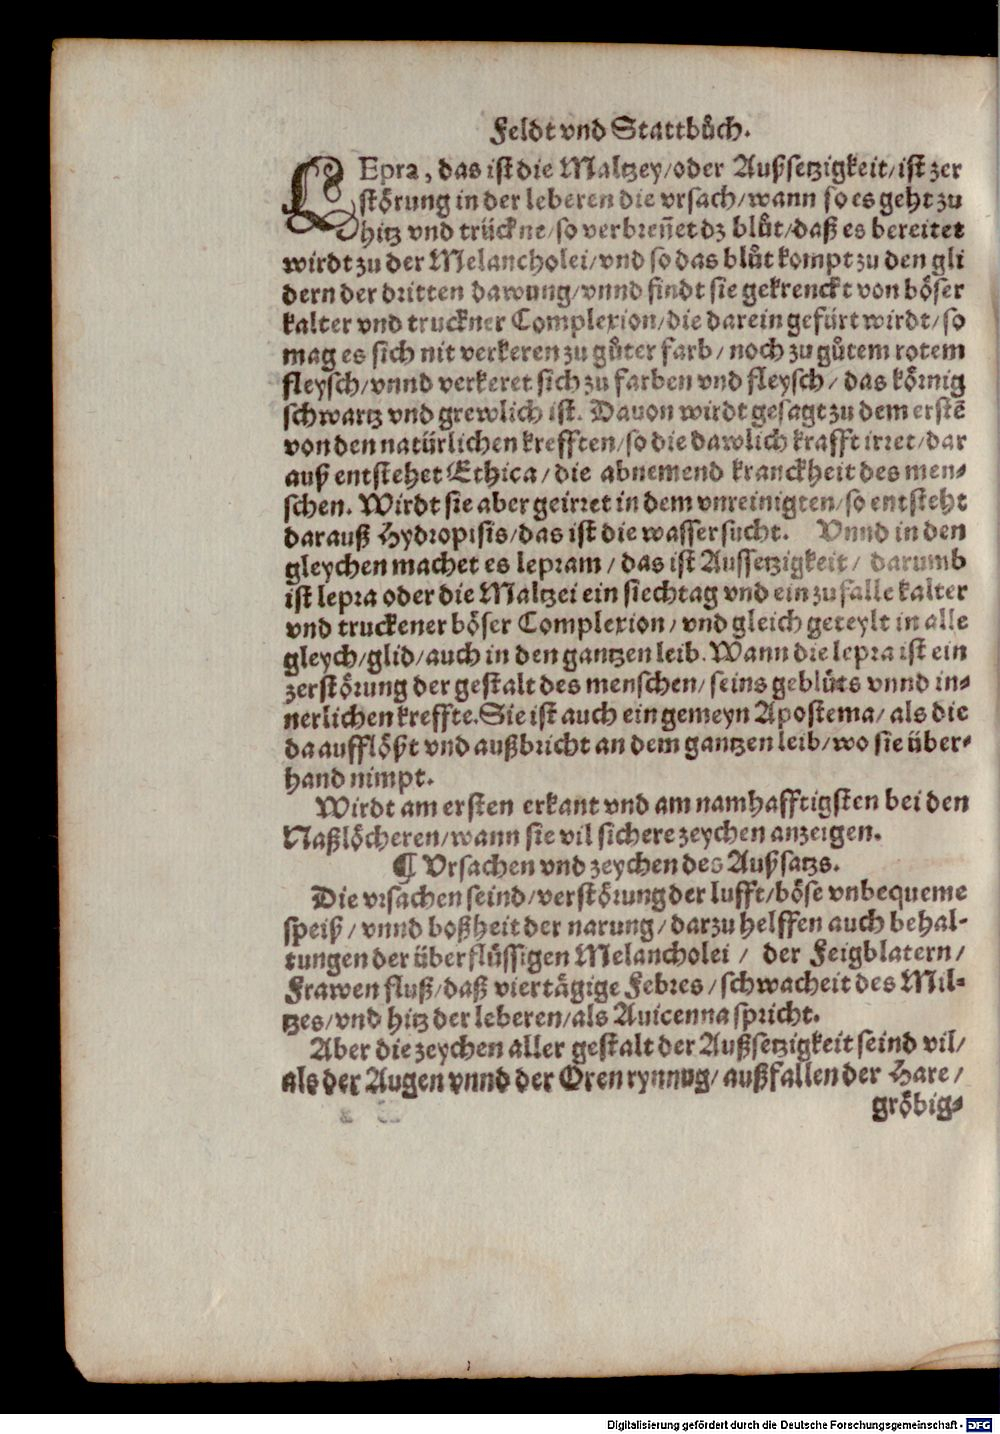 Feldt vnd Stattbuͦch.
LEpra, das ist die Maltzey/oder Außsetzigkeit/ist zer
störung in der leberen die vrsach/wann so es geht zu
hitz vnd trückne/so verbreñet dz bluͦt/daß es bereitet
wirdt zu der Melancholei/vnd so das bluͦt kompt zu den gli
dern der dritten dawung/vnnd findt sie gekrenckt von böser
kalter vnd truckner Complexion/die darein gefürt wirdt/so
mag es sich nit verkeren zu guͦter farb/noch zu guͦtem rotem
fleysch/vnnd verkeret sich zu farben vnd fleysch/das körnig
schwartz vnd grewlich ist. Dauon wirdt gesagt zu dem erstē
von den natürlichen krefften/so die dawlich krafft irret/dar
auß entstehet Ethica/die abnemend kranckheit des men-
schen. Wirdt sie aber geirret in dem vnreinigten/so entsteht
darauß Hydropisis/das ist die wassersucht. Vnnd in den
gleychen machet es lepram/das ist Aussetzigkeit/darumb
ist lepra oder die Maltzei ein siechtag vnd ein zufalle kalter
vnd truckener böser Complexion/vnd gleich geteylt in alle
gleych/glid/auch in den gantzen leib. Wann die lepra ist ein
zerstörung der gestalt des menschen/seins geblüts vnnd in-
nerlichen kreffte. Sie ist auch ein gemeyn Apostema/als die
da aufflößt vnd außbricht an dem gantzen leib/wo sie über-
hand nimpt.
Wirdt am ersten erkant vnd am namhafftigsten bei den
Naßlöcheren/wann sie vil sichere zeychen anzeigen.
¶ Vrsachen vnd zeychen des Außsatzs.
Die vrsachen seind/verstörung der lufft/böse vnbequeme
speiß/vnnd boßheit der narung/darzu helffen auch behal-
tungen der überflüssigen Melancholei/der Feigblatern/
Frawen fluß/daß viertägige Febres/schwacheit des Mil-
tzes/vnd hitz der leberen/als Auicenna spricht.
Aber die zeychen aller gestalt der Außsetzigkeit seind vil/
als der Augen vnnd der Oren rynnug/außfallen der Hare/
gröbig-
Digitalisierung gefördert durch die Deutsche Forschungsgemeinschaft - DFG